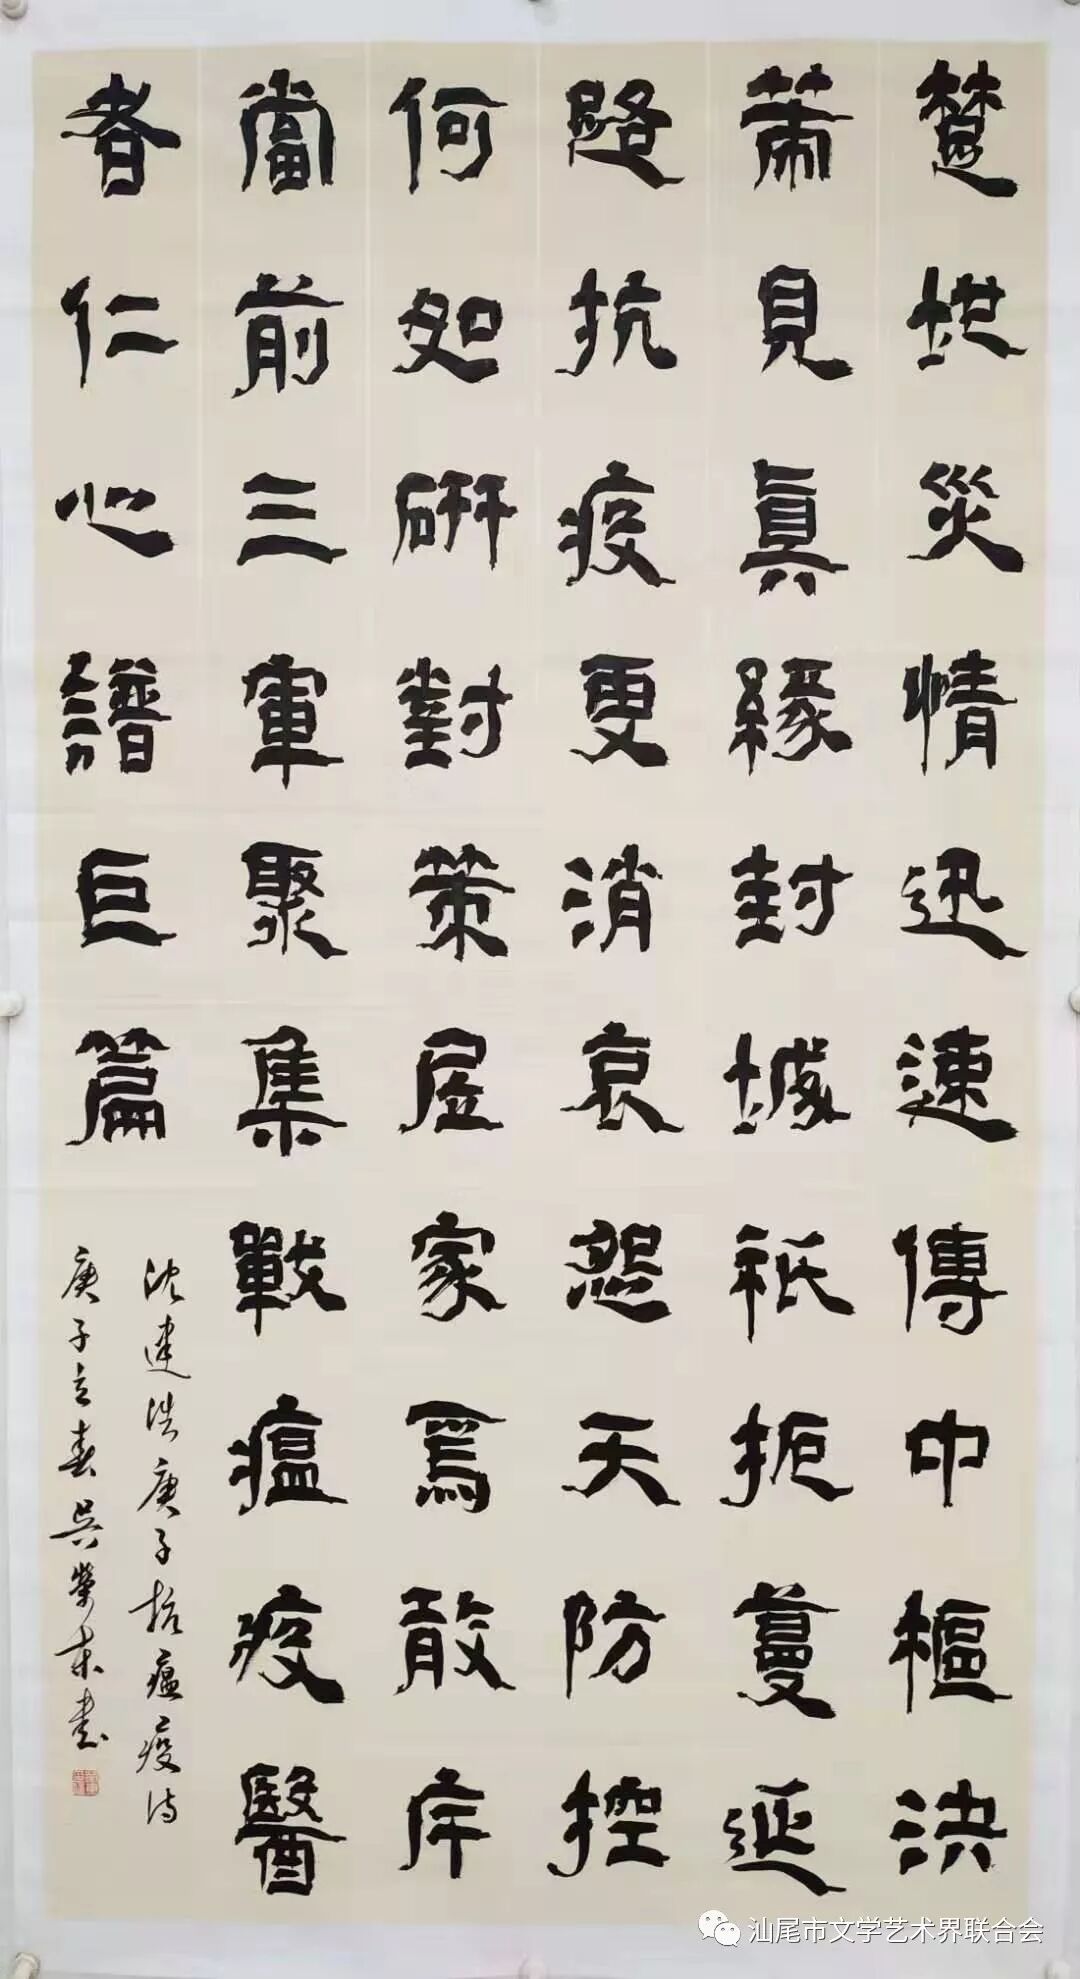 楚地災情迅速傳中樞決
策見真緣封城祇扼蔓延
路抗疫更消哀怨天防控
何如研對策居家焉敢斥
當前三軍聚集戰瘟疫醫
者仁心譜巨篇
沈建洪庚子抗瘟疫诗
庚子立春吳榮 書
汕尾市文学艺术界联合会